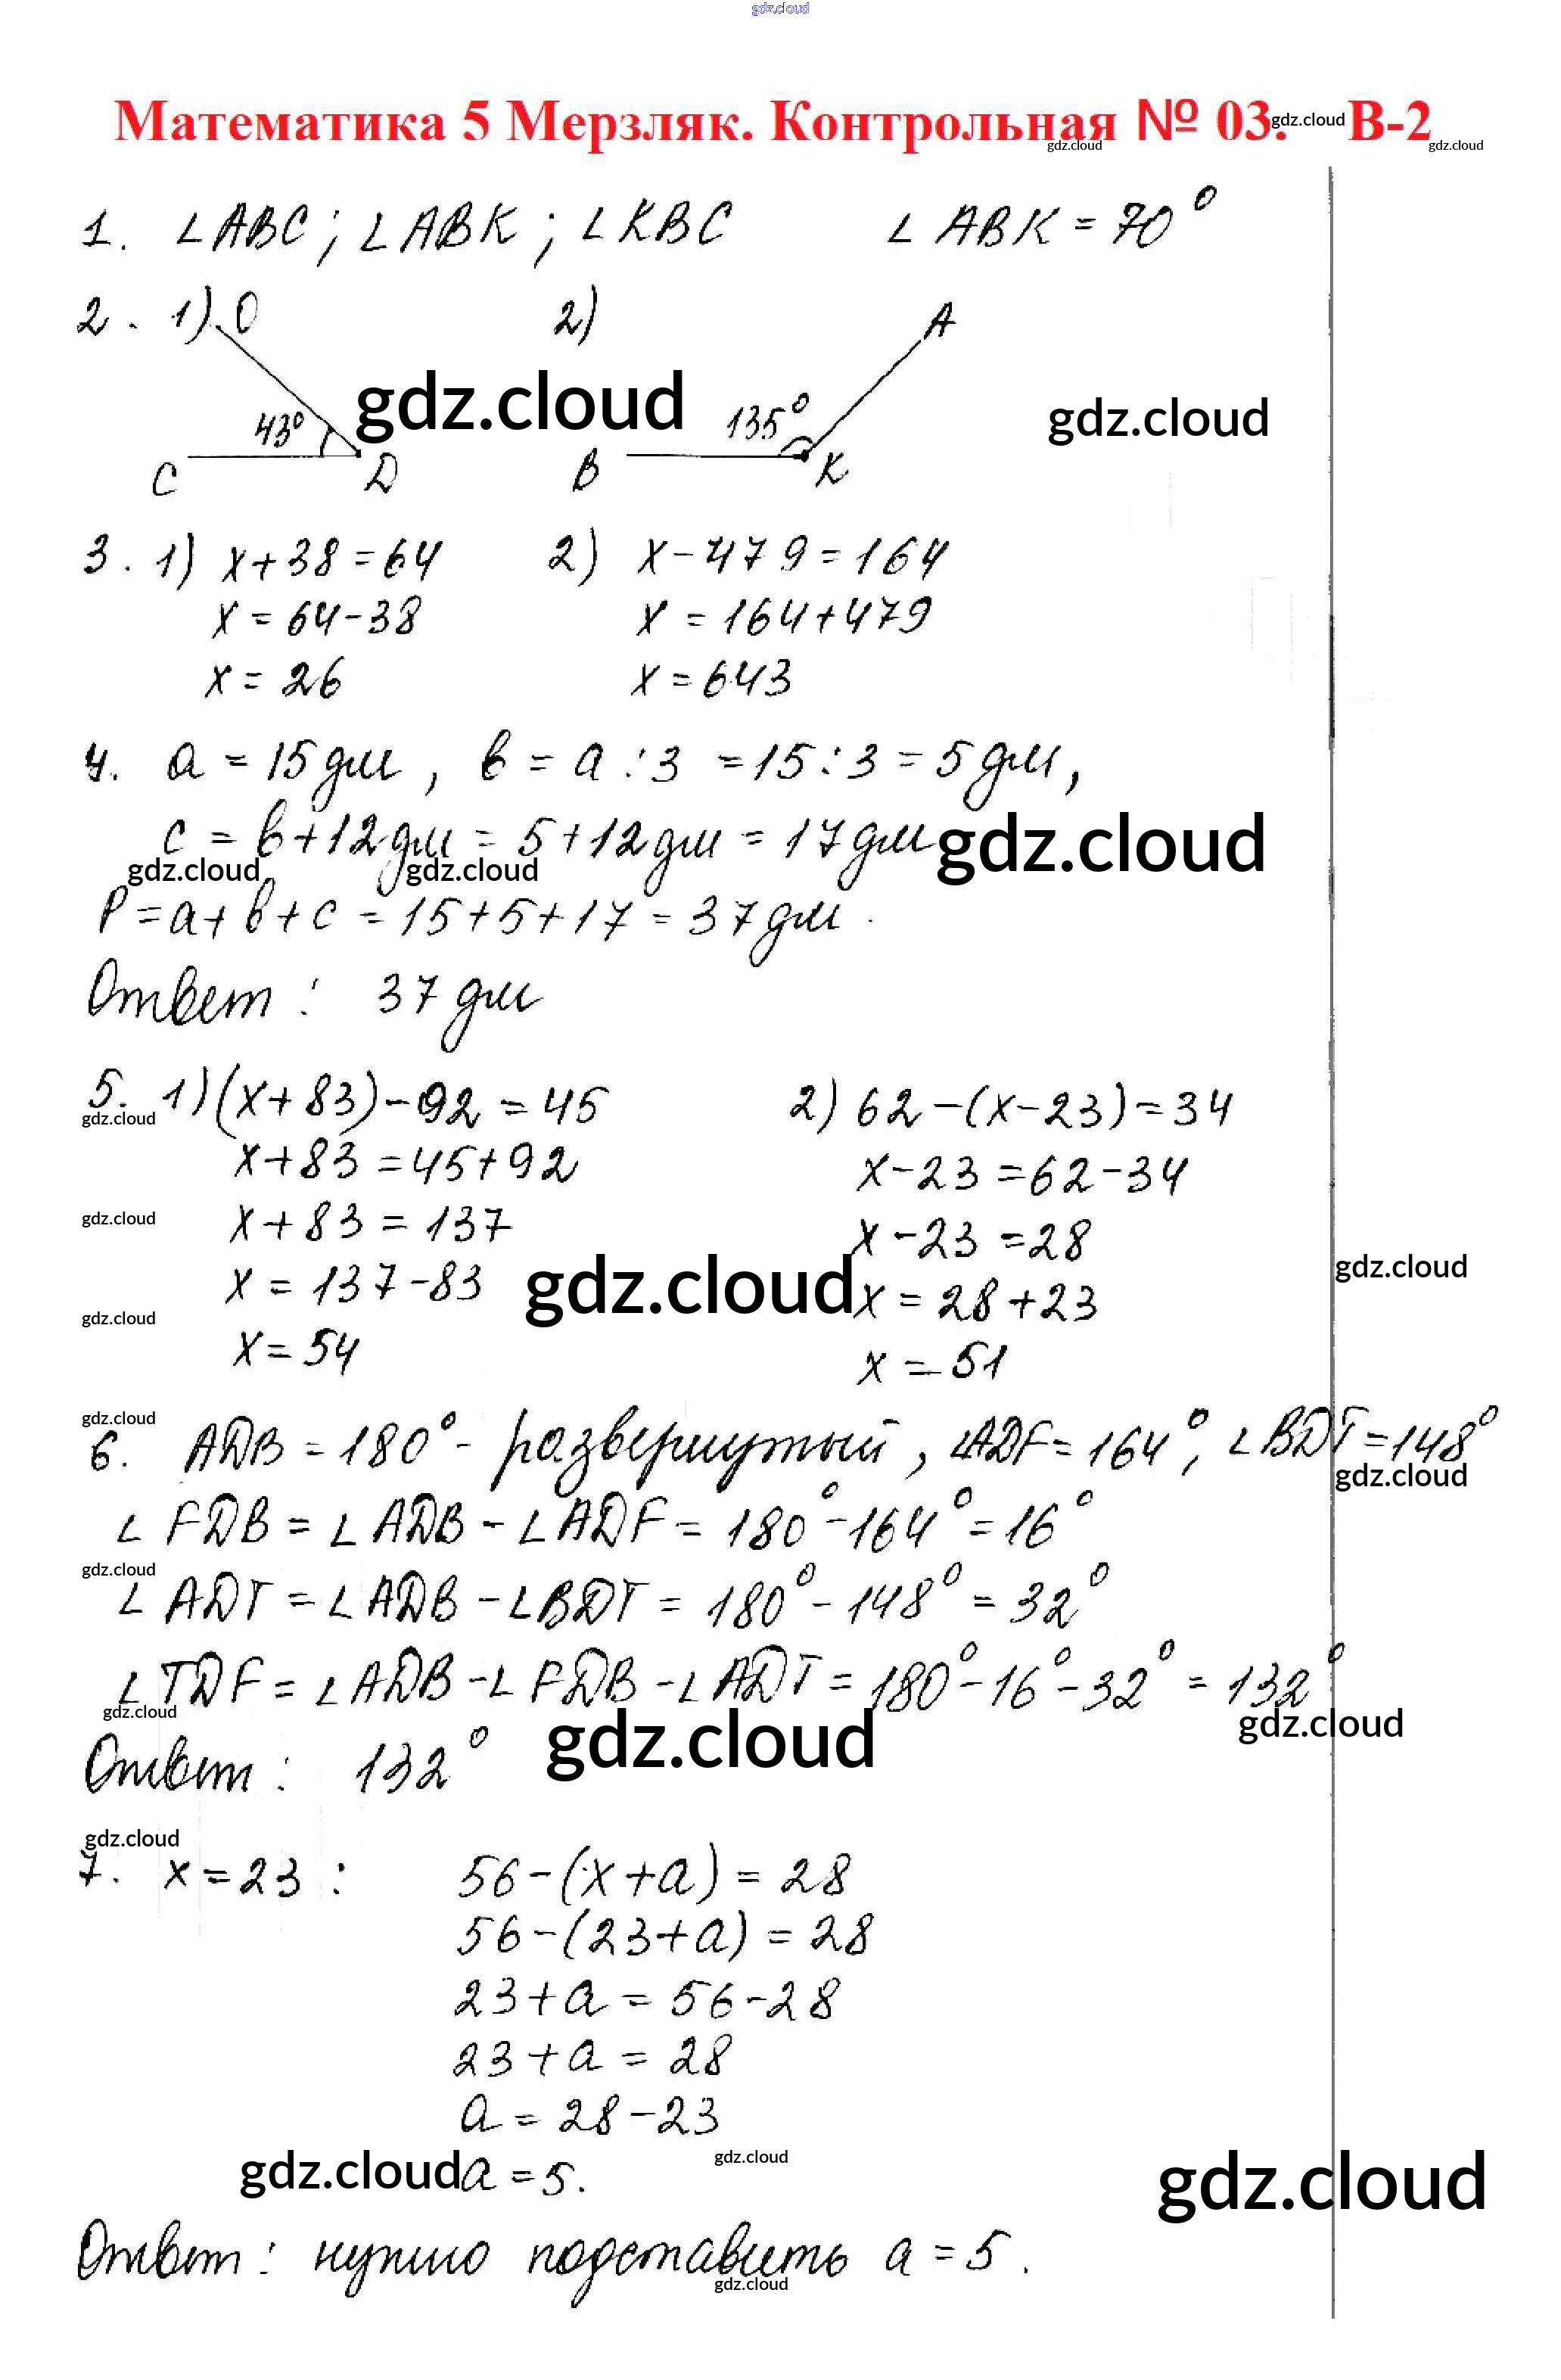 gdz.cloud
Математика 5 Мерзляк. Контрольная № 03. В-2
gdz.cloud
gdz.cloud gdz.cloud
1. ∠ABC; ∠ABK; ∠KBC ∠ABK = 70°
2. 1) O 2) A
gdz.cloud gdz.cloud
43° 135°
C D B K
3. 1) x+38=64 2) x-479=164
x=64-38 x=164+479
x=26 x=643
4. a=15дм, b=a:3=15:3=5дм,
c=b+12дм=5+12дм=17дм
gdz.cloud gdz.cloud gdz.cloud
P=a+b+c=15+5+17=37дм.
Ответ: 37дм
5. 1)(x+83)-92=45 2) 62-(x-23)=34
gdz.cloud
x+83=45+92 x-23=62-34
gdz.cloud
x+83=137 x-23=28
x=137-83 x=28+23
gdz.cloud gdz.cloud
gdz.cloud
x=54 x=51
gdz.cloud
6. ADB=180°- развернутый, ∠ADF=164°, ∠BDT=148°
gdz.cloud
∠FDB=∠ADB-∠ADF=180°-164°=16°
gdz.cloud
∠ADT=∠ADB-∠BDT=180°-148°=32°
∠TDF=∠ADB-∠FDB-∠ADT=180°-16°-32°=132°
gdz.cloud gdz.cloud gdz.cloud
Ответ: 132°
gdz.cloud
7. x=23: 56-(x+a)=28
56-(23+a)=28
23+a=56-28
23+a=28
a=28-23
gdz.cloud gdz.cloud gdz.cloud
a=5.
Ответ: нужно подставить a=5.
gdz.cloud